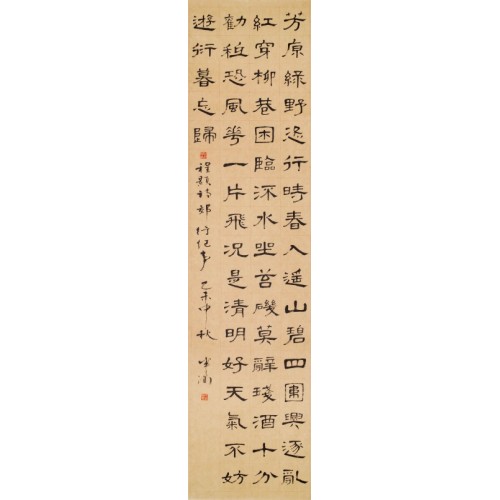 芳原綠野恣行時春入遙山碧四圍興逐亂
紅穿柳巷困臨流水坐苔磯莫辭琖酒十分
勸秪恐風花一片飛況是清明好天氣不妨
遊衍暮忘歸 程顥詩郊行紀事 乙未仲秋